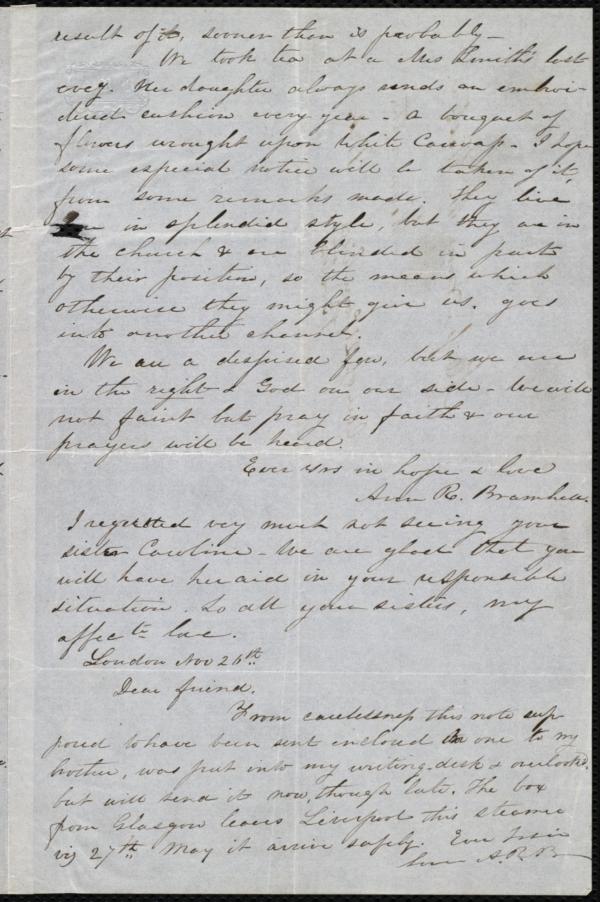 result of it, sooner than is probably -
We took tea at a Mrs Smith's last
eveg. Her daughter always sends an embroi-
dered cushion every year - a bouquet of
flowers wrought upon White Canvass - I hope
some especial notice will be taken of it,
from some remarks made. They live
in splendid style, but they are in
the church & are blinded in part
by their position, so the means which
otherwise they might give us, goes
into another channel.
We are a despised few, but we are
in the right & God on our side - We will
not faint but pray in faith & our
prayers will be heard.
Ever yrs in hope & love
Ann R. Bramhall.
I regretted very much not seeing your
sister Caroline - We are glad that you
will have her aid in your responsible
situation. To all your sisters, my
affecte love.
London Nov 26th.
Dear friend.
From carelessness this note sup
posed to have been sent enclosed in one to my
brother, was put into my writing-desk & overlooked.
but will send it now, though late. The box
from Glasgow leaves Liverpool this steamer
viz 27th May it arrive safely. Ever
A. R. B